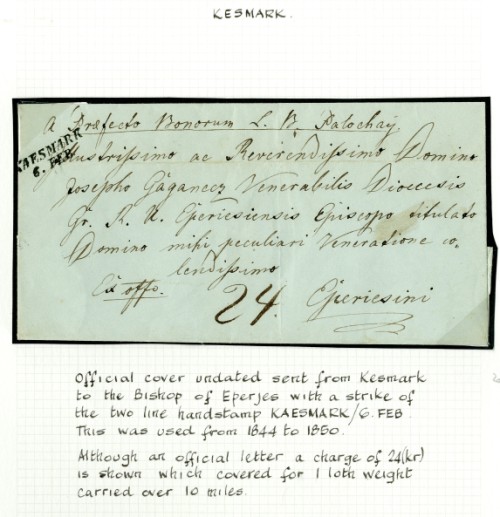 KESMARK.
A Præfecto Bonorum L. B. Palochay
KAESMARK
6. FEB.
Illustrissimo ac Reverendissimo Domino
Josepho Gaganecz Venerabilis Dioecesis
Gr. R. U. Eperiesiensis Episcopo titulato
Domino mihi peculiari Veneratione co-
lendissimo
Ex offo.
24.
Eperiesini
Official cover undated sent from Kesmark
to the Bishop of Eperjes with a strike of
the two line handstamp KAESMARK/6.FEB.
This was used from 1844 to 1850.
Although an official letter a charge of 24(kr)
is shown which covered for 1 loth weight
carried over 10 miles.